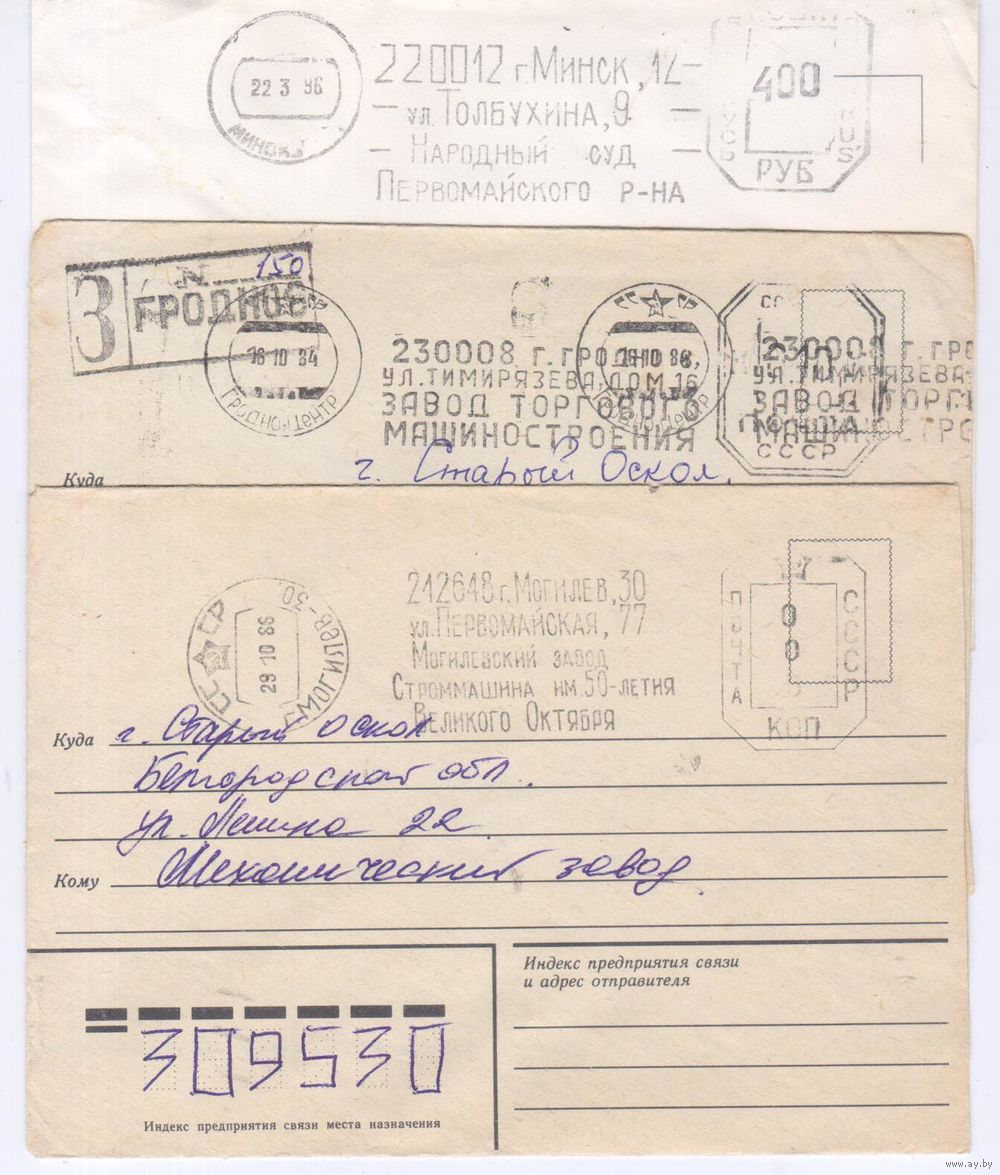 22 3 96
МИНСК
220012 г. Минск, 12
ул. Толбухина, 9
Народный суд
Первомайского р-на
400
RUS
РУБ
З
N 150
ГРОДНО
СССР
16 10 84
Гродно-центр
230008 г. ГРОДНО 8,
УЛ. ТИМИРЯЗЕВА, ДОМ 16
ЗАВОД ТОРГОВОГО
МАШИНОСТРОЕНИЯ
СССР
16 10 8
Гродно-центр
230008 г. ГРО
УЛ. ТИМИРЯЗЕВА
ЗАВОД ТОРГ
МАШИНОСТРО
ПОЧТА
СССР
Куда
г. Старый Оскол,
СССР
29 10 86
МОГИЛЕВ-30
212648 г. Могилев, 30
ул. Первомайская, 77
Могилевский завод
Строммашина им. 50-летия
Великого Октября
ПОЧТА
00
СССР
КОП
Куда г. Старый Оскол
Белгородской обл.
ул. Ленина 22
Кому Механический завод.
Индекс предприятия связи
и адрес отправителя
309530
Индекс предприятия связи места назначения
www.ay.by